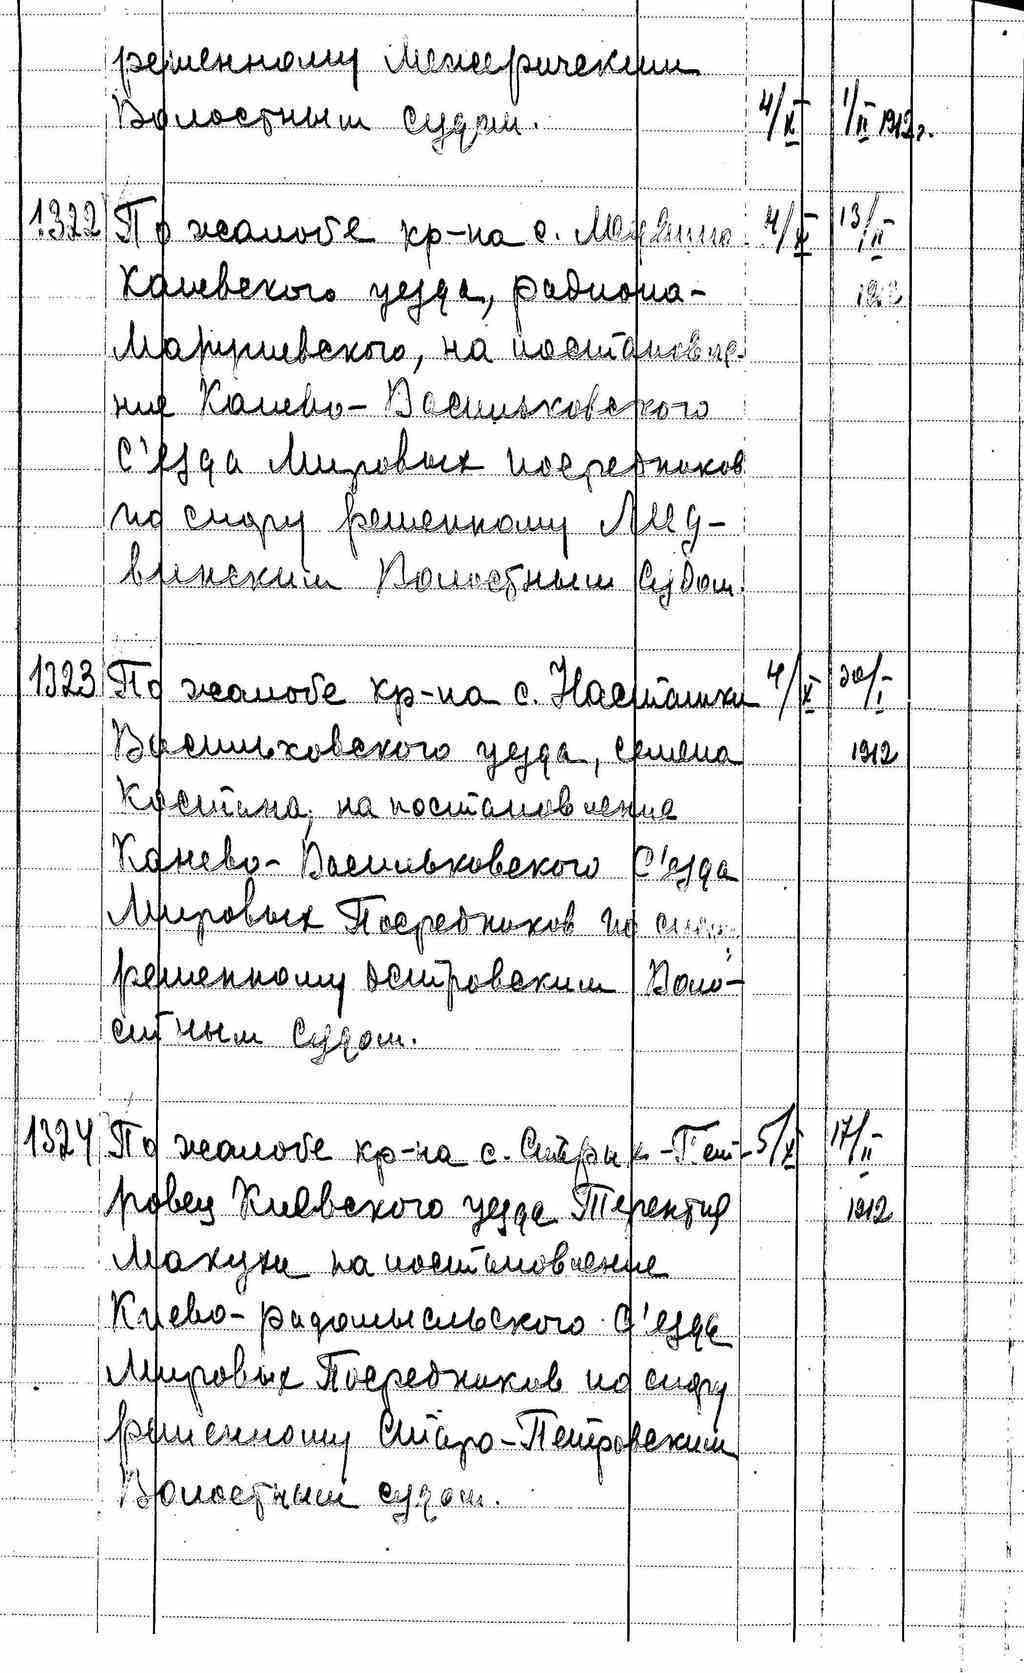 решенному Межеричским
Волостным судом. 4/XI 1/II 1912 г.
1322 По жалобе кр-на с. Медвина 4/XI 13/II
Каневского уезда, Радиона 1912
на постановле-
ние Канево-Васильковского
С'езда Мировых посредников
по спору решенному Мед-
винским Волостным Судом.
1323 По жалобе кр-на с. Насташки 4/X 30/I
Васильковского уезда, Семена 1912
Костина, на постановление
Канево-Васильковского С'езда
Мировых Посредников по спору
решенному Островским Воло-
стным Судом.
1324 По жалобе кр-на с. Старык-Пет- 5/X 17/II
ровец Киевского уезда Терентия 1912
на постановление
Киево-Радомысльского С'езда
Мировых Посредников по спору
решенному Старо-Петровским
Волостным судом.